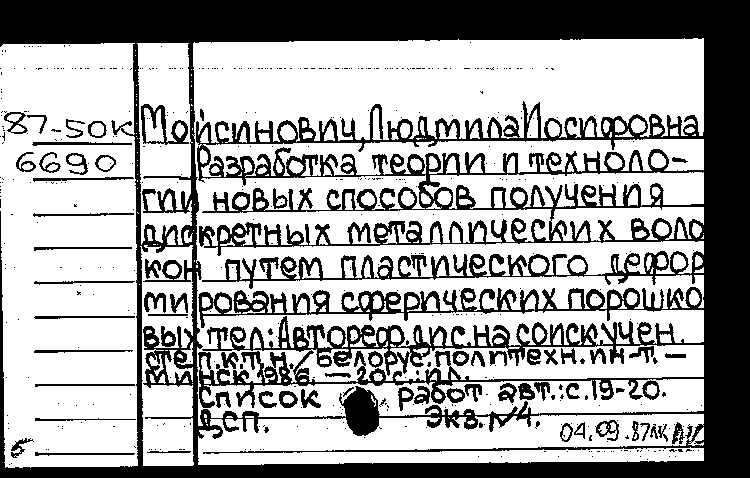 87-50К Мойсинович, Людмила Иосифовна
6690 Разработка теории и техноло-
гии новых способов получения
дискретных металлических воло
кон путем пластического дефор
мирования сферических порошко
вых тел: Автореф. дис. на соиск. учен.
степ. к.т.н. / Белорус. политехн. ин-т. —
Минск, 1986. — 20 с.: ил.
Список работ авт.: с. 19-20.
ДСП. Экз. №4.
04.09.87
б